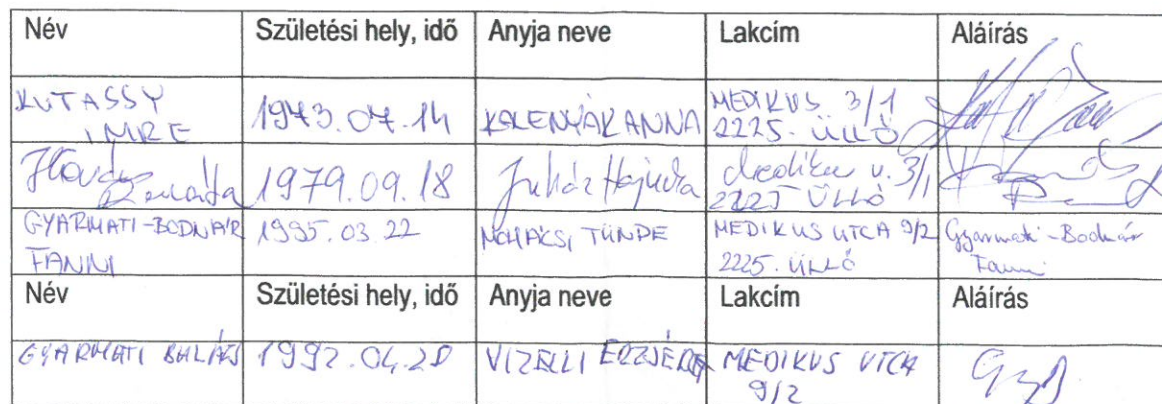 Név Születési hely, idő Anyja neve Lakcím Aláírás
KUTASSY IMRE 1943.04.14 ANNA MEDIKUS 3/1 2225. ÜLLŐ
1979.09.18 u. 3/1 2225 ÜLLŐ
GYARMATI-BODNÁR FANNI 1995.03.22 MOHÁCSI TÜNDE MEDIKUS UTCA 9/2 2225. ÜLLŐ Gyarmati-Bodnár Fanni
Név Születési hely, idő Anyja neve Lakcím Aláírás
GYARMATI BALÁZS 1992.04.28 VIZELLI ERZSÉBET MEDIKUS UTCA 9/2